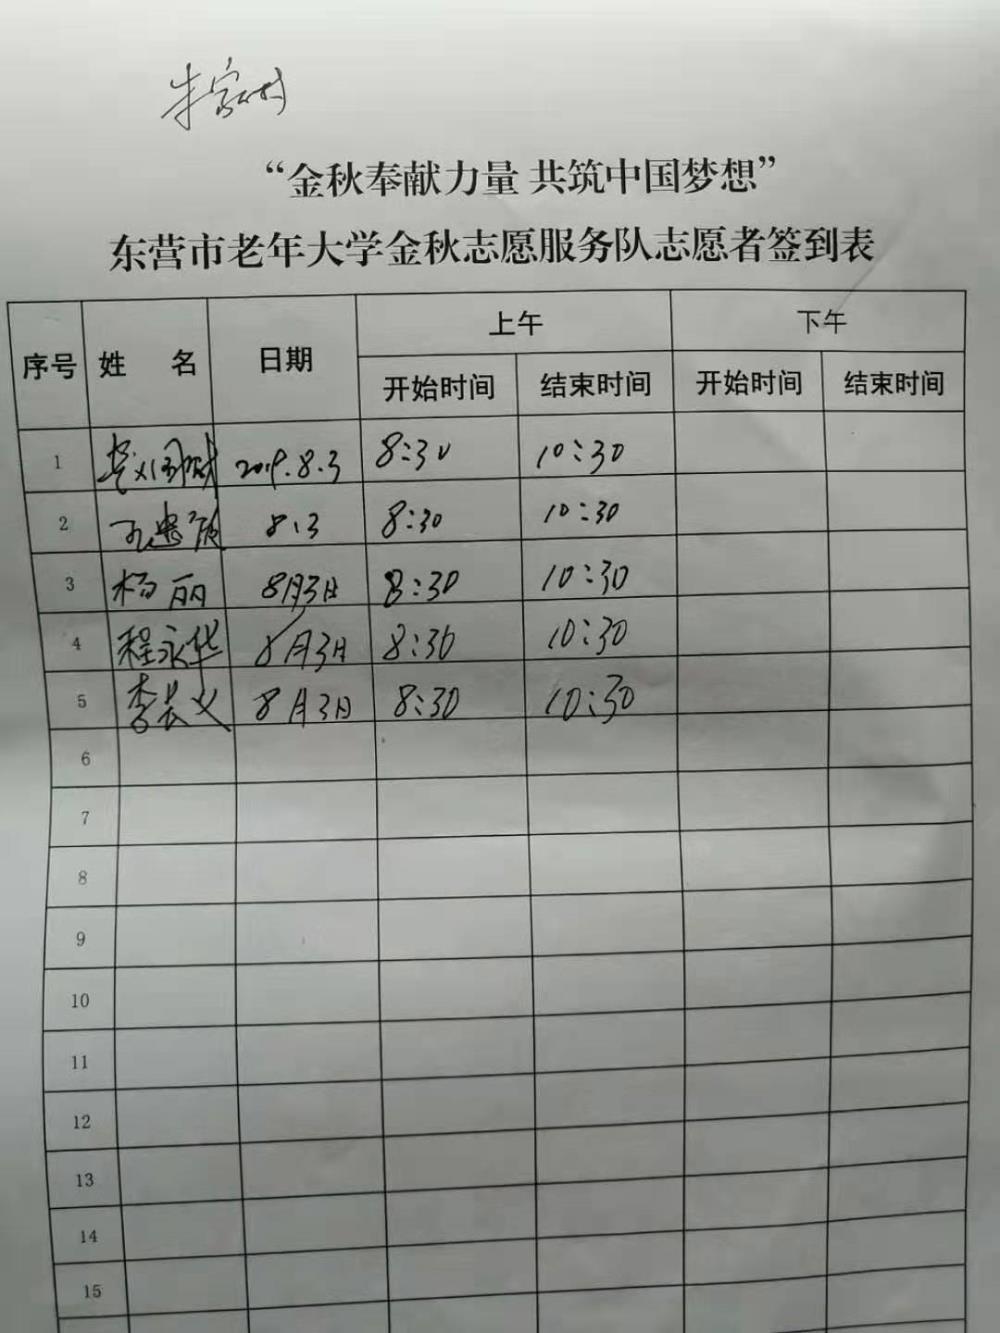 朱家村
“金秋奉献力量 共筑中国梦想”
东营市老年大学金秋志愿服务队志愿者签到表
序号 姓 名 日期 上午 下午
开始时间 结束时间 开始时间 结束时间
1 2019.8.3 8:30 10:30
2 8.3 8:30 10:30
3 杨丽 8月3日 8:30 10:30
4 程永华 8月3日 8:30 10:30
5 李长义 8月3日 8:30 10:30
6
7
8
9
10
11
12
13
14
15